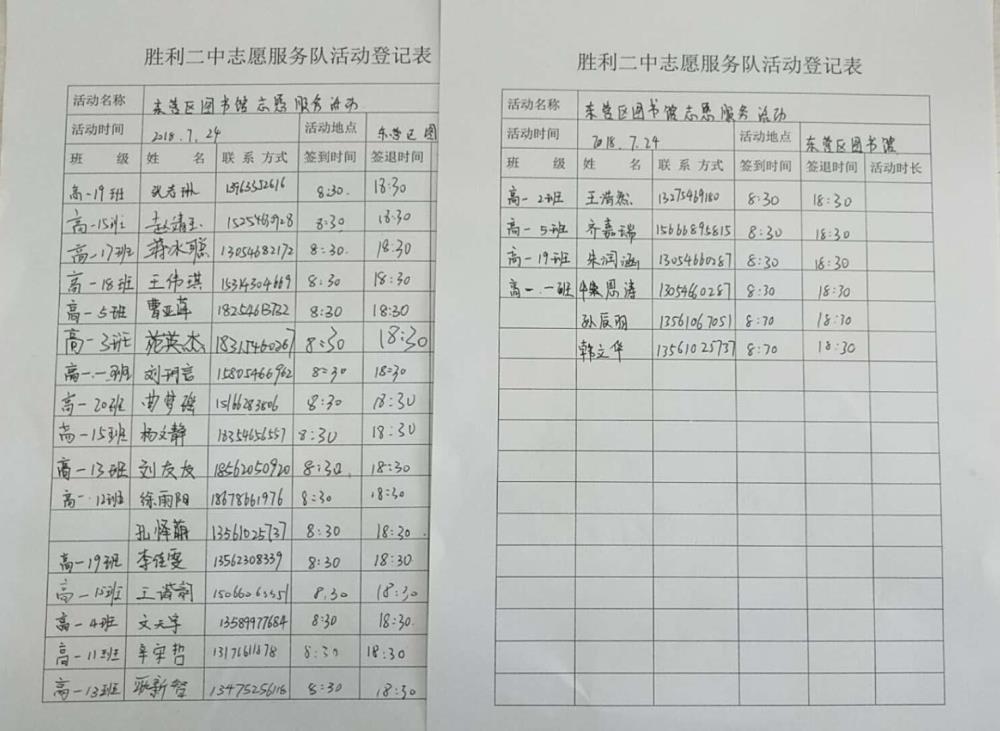 胜利二中志愿服务队活动登记表
活动名称 东营区图书馆志愿服务活动
活动时间 2018.7.24 活动地点 东营区图
班 级 姓 名 联系方式 签到时间 签退时间
高一19班 8:30. 18:30
高一15班 8:30 18:30
高一17班 13054682172 8:30. 18:30
高一18班 王伟琪 15314304669 8:30 18:30
高一5班 曹亚萍 8:30 18:30
高一3班 范英杰 18315460267 8:30 18:30
高一.一班 刘玥言 15805466962 8:30 18:30
高一20班 曲梦瑶 15166283806 8:30 18:30
高一15班 杨文静 18354656557 8:30 18:30
高一13班 刘友友 18562050920 8:30 18:30
高一12班 徐雨阳 18678661976 8:30 18:30
孔怿萌 13561025737 8:30 18:30.
高一19班 李佳雯 13562308339 8:30 18:30
高一15班 8:30 18:30
高一4班 文天宇 13589977684 8:30 18:30.
高一11班 辛宗哲 8:30 18:30
高一13班 8:30 18:30
胜利二中志愿服务队活动登记表
活动名称 东营区图书馆志愿服务活动
活动时间 2018.7.24 活动地点 东营区图书馆
班 级 姓 名 联系方式 签到时间 签退时间 活动时长
高一2班 王浩然 13275469180 8:30 18:30
高一5班 齐嘉瑞 15666895815 8:30 18:30
高一19班 朱润涵 13054660287 8:30 18:30
高一.一班 恩涛 13054660287 8:30 18:30
孙辰羽 13561067051 8:30 18:30
韩文华 13561025737 8:30 18:30